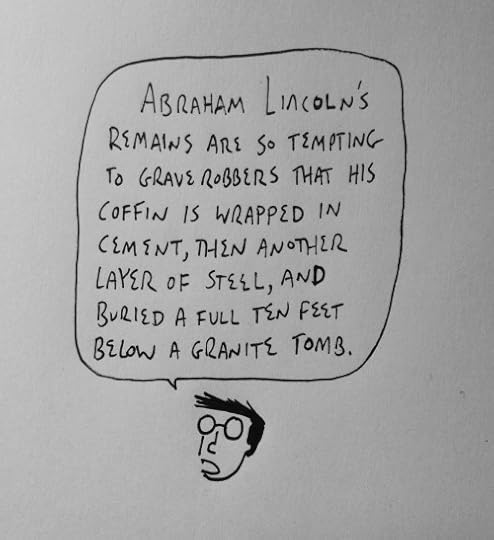 ABRAHAM LINCOLN'S
REMAINS ARE SO TEMPTING
TO GRAVE ROBBERS THAT HIS
COFFIN IS WRAPPED IN
CEMENT, THEN ANOTHER
LAYER OF STEEL, AND
BURIED A FULL TEN FEET
BELOW A GRANITE TOMB.